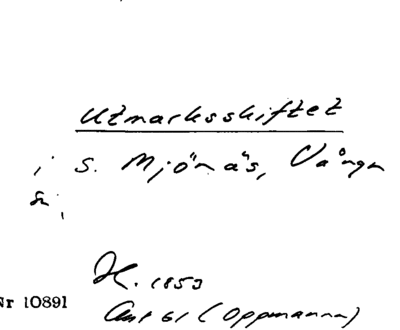 Utmarksskiftet
i S. Mjönäs, Vånga
sn.
H. 1853
Nr 10891
Akt 61 (Oppmanna)